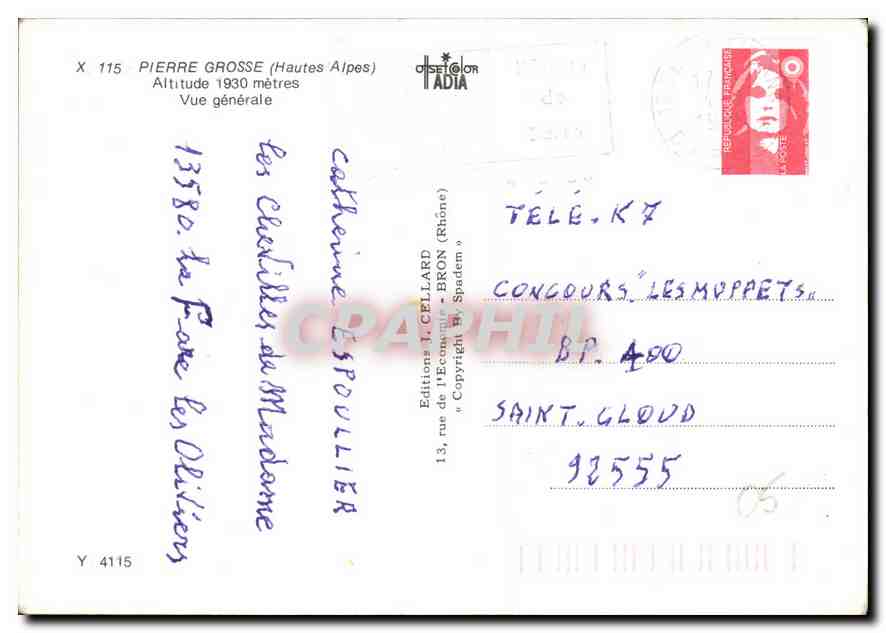 X 115 PIERRE GROSSE (Hautes Alpes)
Altitude 1930 mètres
Vue générale
OFFSETCOLOR
IADIA
RÉPUBLIQUE FRANÇAISE
LA POSTE
Catherine ESPOULLIER
Les Chevilles de Madame
13580. La Fare les Oliviers
Editions J. CELLARD
13, rue de l'Economie - BRON (Rhône)
« Copyright By Spadem »
TÉLÉ. K7
CONCOURS. "LES MUPPETS"
BP. 400
SAINT. CLOUD
92555
05
CPAPHIL
Y 4115